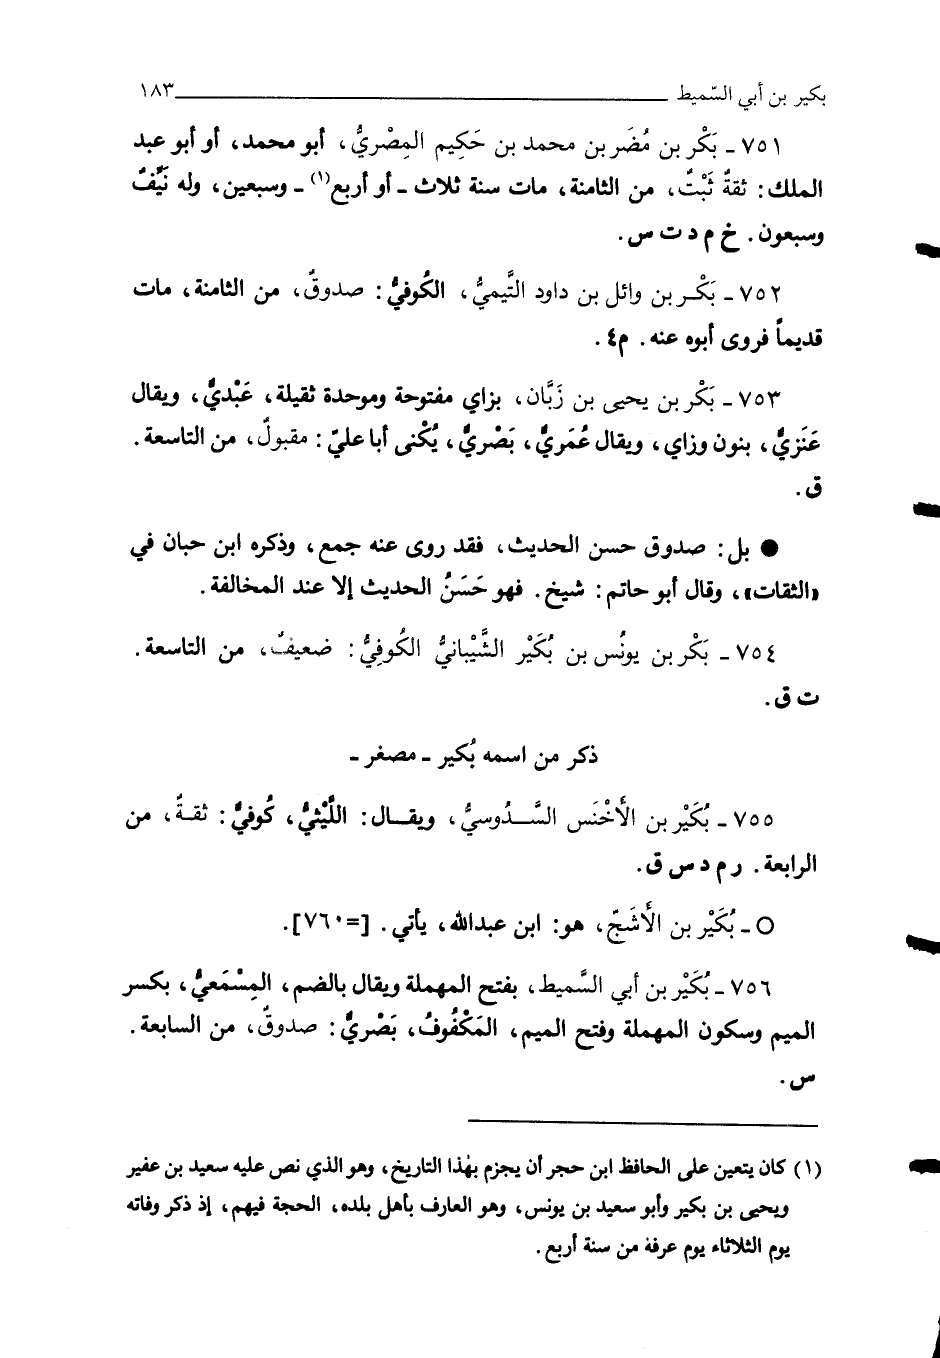 بكير بن أبي السّميط ١٨٣
٧٥١ ـ بَكْر بن مُضَر بن محمد بن حَكِيم المِصْريُّ، أبو محمد، أو أبو عبد
الملك: ثقةٌ ثَبْتٌ، من الثامنة، مات سنة ثلاث ـ أو أربع(١) ـ وسبعين، وله نَيِّفٌ
وسبعون. خ م د ت س.
٧٥٢ ـ بَكْر بن وائل بن داود التَّيميُّ، الكُوفيُّ: صدوقٌ، من الثامنة، مات
قديماً فروى أبوه عنه. م٤.
٧٥٣ ـ بَكْر بن يحيى بن زَبَّان، بزاي مفتوحة وموحدة ثقيلة، عَبْديُّ، ويقال
عَنَزيُّ، بنون وزاي، ويقال عُمَريُّ، بَصْريُّ، يُكْنى أبا عليّ: مقبولٌ، من التاسعة.
ق.
● بل: صدوق حسن الحديث، فقد روى عنه جمع، وذكره ابن حبان في
«الثقات»، وقال أبو حاتم: شيخ. فهو حَسَنُ الحديث إلا عند المخالفة.
٧٥٤ ـ بَكْر بن يونُس بن بُكَيْر الشَّيْبانيُّ الكُوفِيُّ: ضعيفٌ، من التاسعة.
ت ق.
ذكر من اسمه بُكير ـ مصغر ـ
٧٥٥ ـ بُكَيْر بن الأَخْنَس السَّدُوسيُّ، ويقال: اللَّيْثيُّ، كُوفيُّ: ثقةٌ، من
الرابعة. ر م د س ق.
○ ـ بُكَيْر بن الأَشَجّ، هو: ابن عبدالله، يأتي. [=٧٦٠].
٧٥٦ ـ بُكَيْر بن أبي السَّميط، بفتح المهملة ويقال بالضم، المِسْمَعيُّ، بكسر
الميم وسكون المهملة وفتح الميم، المَكْفُوفُ، بَصْريُّ: صدوقٌ، من السابعة.
س.
(١) كان يتعين على الحافظ ابن حجر أن يجزم بهٰذا التاريخ، وهو الذي نص عليه سعيد بن عفير
ويحيى بن بكير وأبو سعيد بن يونس، وهو العارف بأهل بلده، الحجة فيهم، إذ ذكر وفاته
يوم الثلاثاء يوم عرفة من سنة أربع.